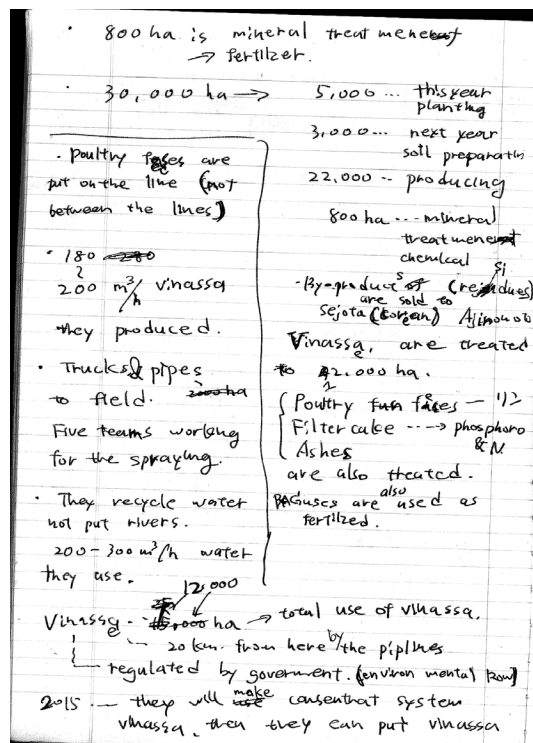 · 800 ha is mineral treatment
→ fertilizer.
· 30,000 ha → 5,000 ... this year
planting
3,000 ... next year
soil preparatin
22,000 -- producing
800 ha ... mineral
treatment
chemical
- By-products (residues)
are sold to
Sejota (Korean) Ajinomoto
Vinasse, are treated
to 12.000 ha.
Poultry feces — 1/2
Filter cake ---→ phosphoro
& N.
Ashes
are also treated.
BAGuses are also used as
fertilized.
· Poultry feces are
put on the line (not
between the lines)
· 180
200 m³/h vinassa
they produced.
· Trucks & pipes
to field.
Five teams working
for the spraying.
· They recycle water
not put rivers.
200 - 300 m³/h water
they use.
12,000
Vinasse -- ha → total use of vinassa.
-- 20 km. from here by the piplines
regulated by goverment. (environ mental low)
2015 --- they will make consentrat system
vinassa, then they can put vinassa